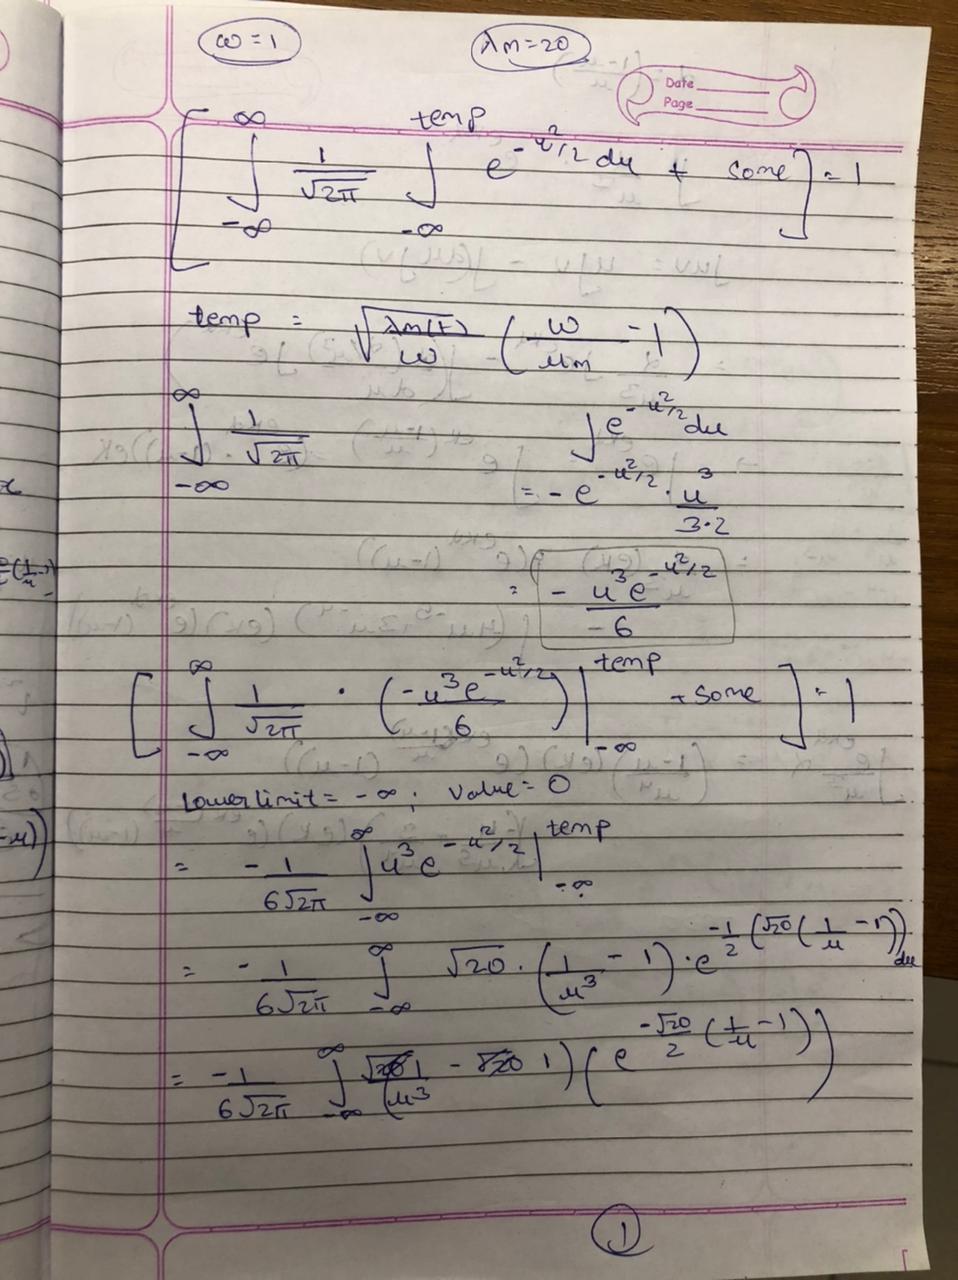 ω = 1 λm = 20
Date
Page
[ ∫_{-∞}^{∞} 1/√2π ∫_{-∞}^{temp} e^{-u²/2} du + some ] = 1
temp = √(λm(t)/ω) (ω/μm - 1)
∫_{-∞}^{∞} 1/√2π ∫ e^{-u²/2} du
= - e^{-u²/2} · u³/3·2
= - u³e^{-u²/2}/-6
[ ∫_{-∞}^{∞} 1/√2π · (-u³e^{-u²/2}/6) |_{-∞}^{temp} + some ] = 1
Lower limit = -∞ ; Value = 0
= -1/6√2π ∫_{-∞}^{∞} u³ e^{-u²/2} |_{-∞}^{temp}
= -1/6√2π ∫_{-∞}^{∞} √20 · (1/μ³ - 1) · e^{-1/2 (√20 (1/μ - 1))} du
= -1/6√2π ∫_{-∞}^{∞} (1/μ³ - 1) (e^{-√20/2 (1/μ - 1)})
1